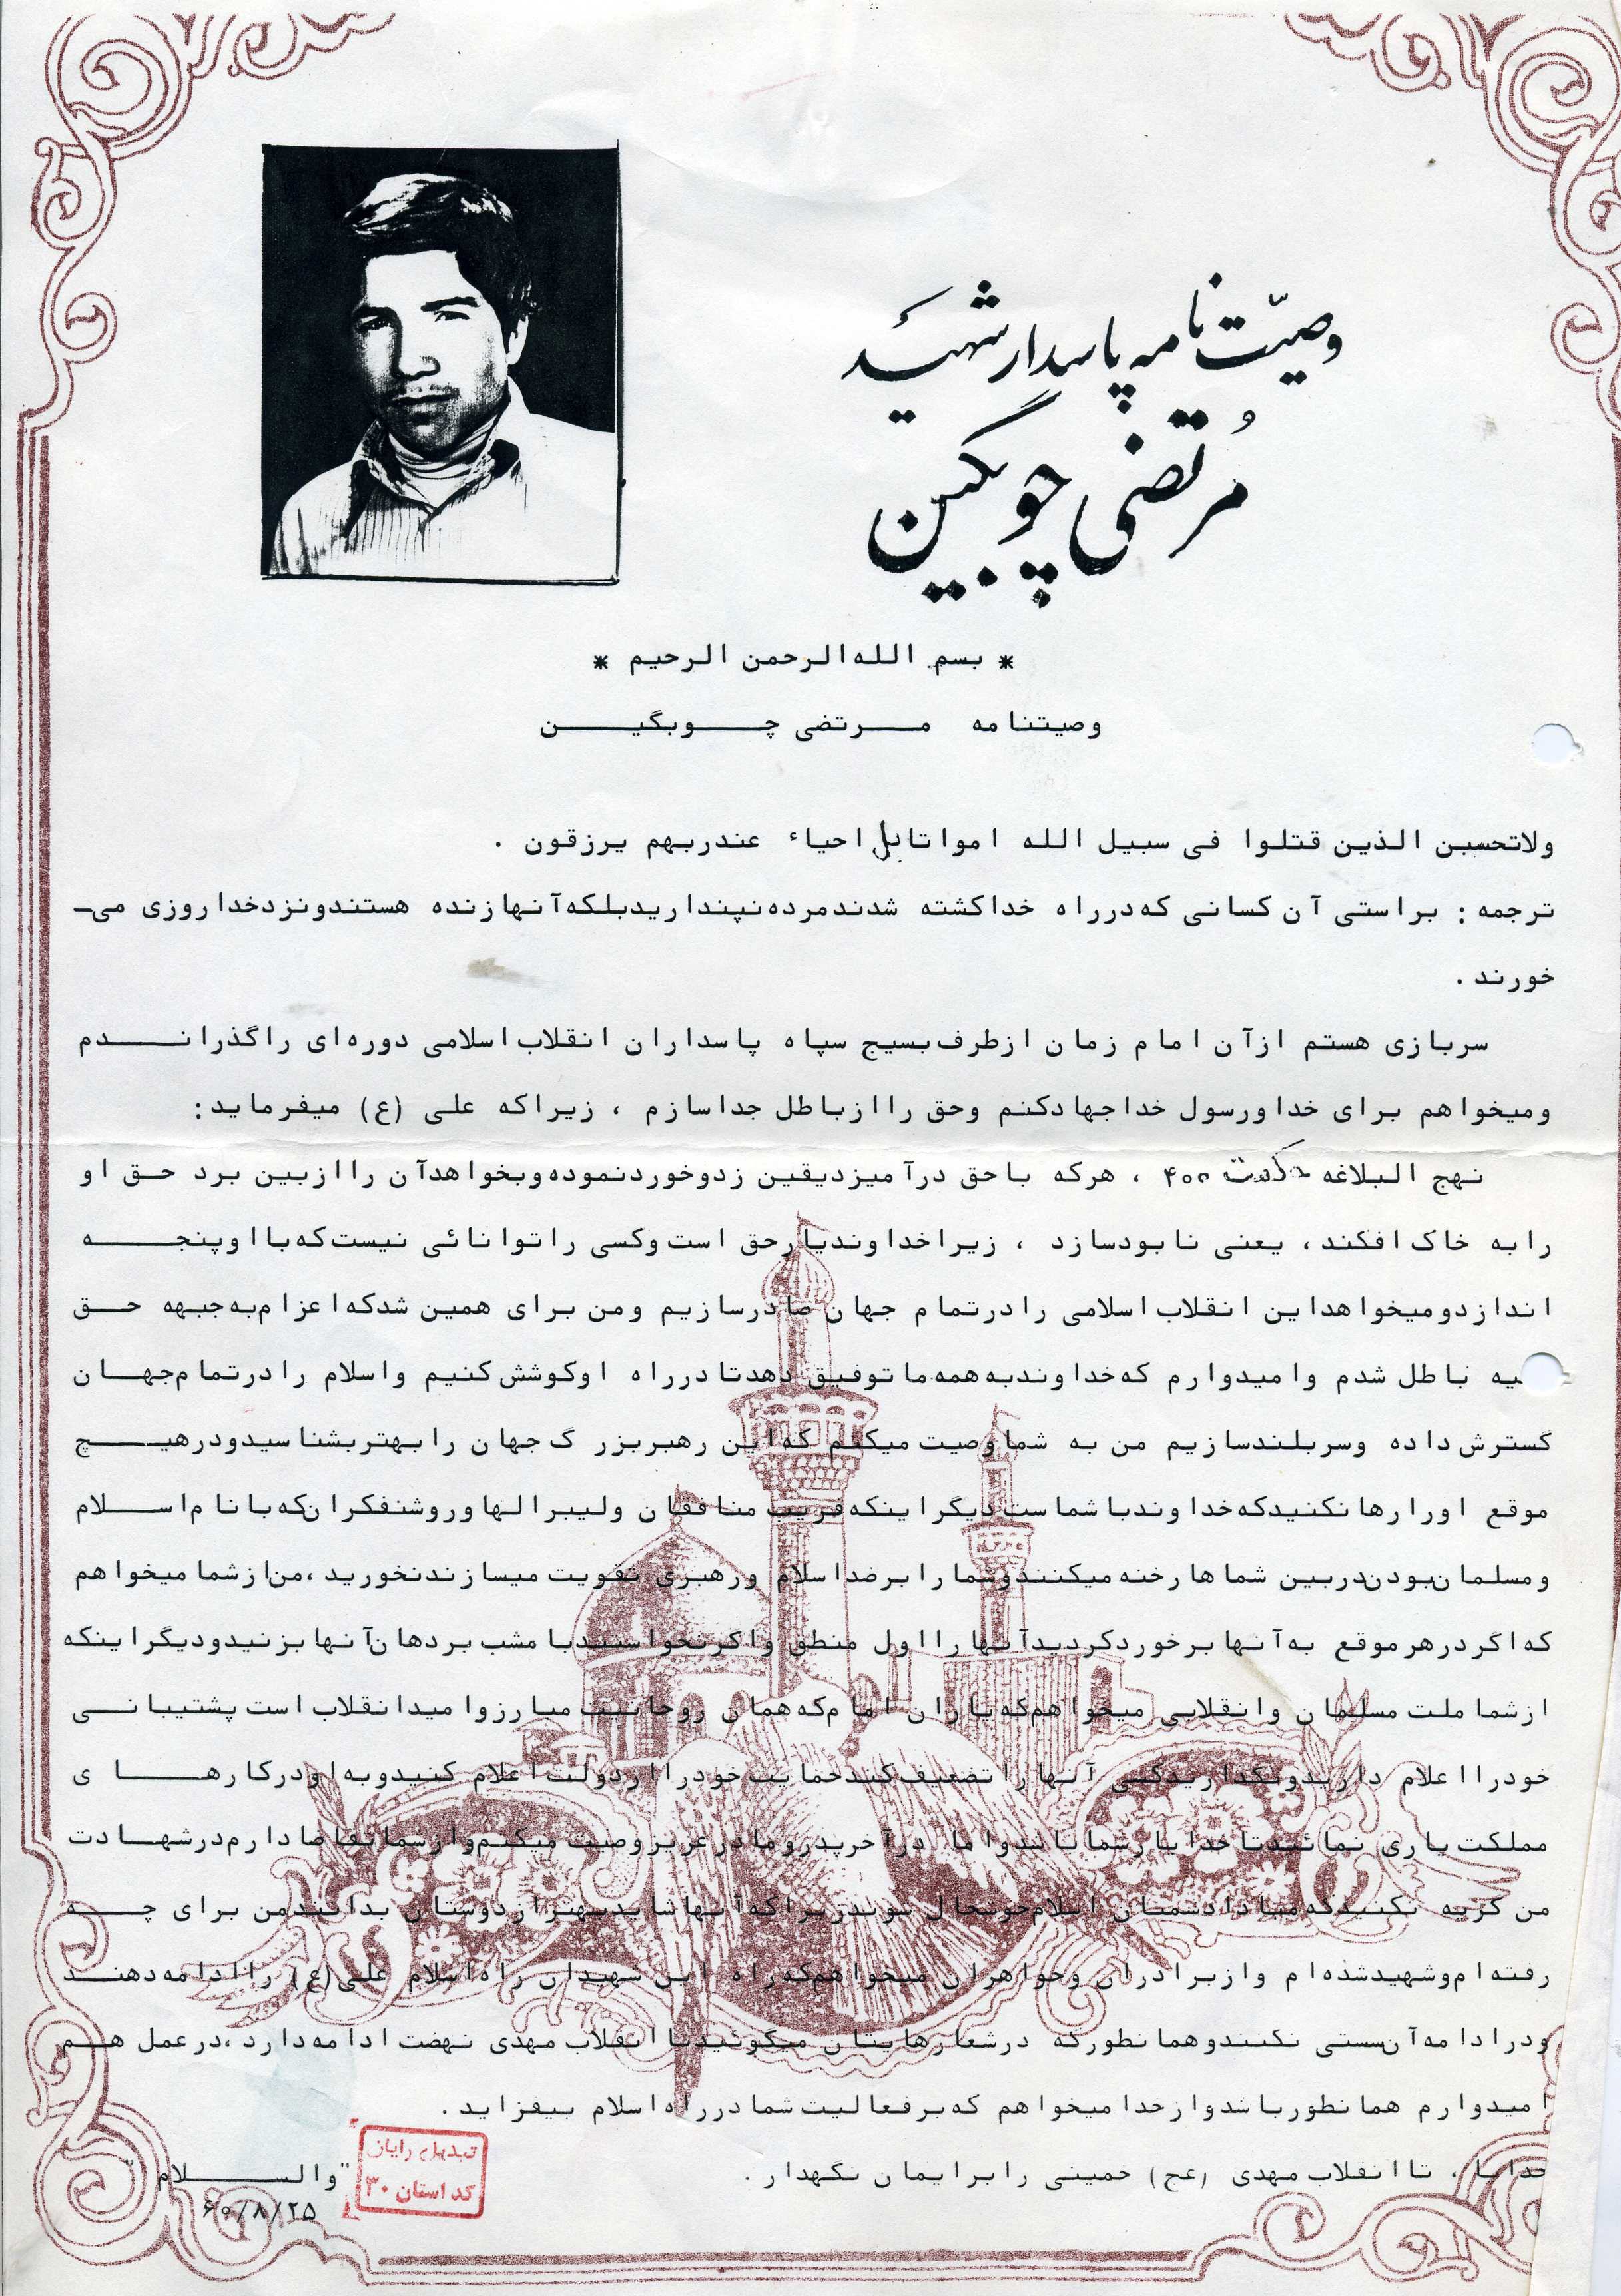 وصیّت نامه پاسدار شهید
مُرتضی چوبگین
* بسم الله الرحمن الرحیم *
وصیتنامه مرتضی چوبگین
ولاتحسبن الذین قتلوا فی سبیل الله امواتا بل احیاء عندربهم یرزقون .
ترجمه : براستی آن کسانی که درراه خدا کشته شدند مرده نپندارید بلکه آنها زنده هستند و نزد خدا روزی می-
خورند .
سربازی هستم ازآن امام زمان ازطرف بسیج سپاه پاسداران انقلاب اسلامی دوره‌ای را گذراندم
ومیخواهم برای خدا ورسول خدا جهاد کنم وحق را ازباطل جدا سازم ، زیرا که علی (ع) میفرماید:
نهج البلاغه حکمت ۴۰۰ ، هرکه با حق درآمیزد یقین زدوخورد نموده وبخواهد آن را ازبین برد حق او
را به خاک افکند ، یعنی نابود سازد ، زیرا خداوند یار حق است وکسی را توانائی نیست که با او پنجه
اندازد ومیخواهد این انقلاب اسلامی را درتمام جهان صادر سازیم ومن برای همین شد که اعزام به جبهه حق
باطل شدم وامیدوارم که خداوند به همه ما توفیق دهد تا درراه او کوشش کنیم واسلام را درتمام جهان
گسترش داده وسربلند سازیم من به شما وصیت میکنم که این رهبر بزرگ جهان را بهتر بشناسید ودرهیچ
موقع اورا رها نکنید که خداوند با شماست دیگر اینکه فریب منافقان ولیبرالها وروشنفکران که با نام اسلام
ومسلمان بودن دربین شماها رخنه میکنند وشما را برضد اسلام ورهبری تقویت میسازند نخورید ، من ازشما میخواهم
که اگر درهر موقع به آنها برخورد کردید آنها را اول منطق واگر نخواستند با مشت بردهان آنها بزنید ودیگر اینکه
ازشما ملت مسلمان وانقلابی میخواهم که یاران امام که همان روحانیت مبارز وامید انقلاب است پشتیبانی
خود را اعلام دارید ونگذارید کسی آنها را تضعیف کند حمایت خود را ازدولت اعلام کنید وبه او درکارهای
مملکت یاری نمائید تا خدا یار شما باشد واما درآخر پدر و مادر عزیز وصیت میکنم وازشما تقاضا دارم درشهادت
من گریه نکنید که مبادا دشمنان اسلام خوشحال شوند زیرا که آنها شاید بهتر ازدوستان بدانند من برای چه
رفته‌ام وشهید شده‌ام وازبرادران وخواهران میخواهم که راه این شهیدان راه اسلام علی (ع) را ادامه دهند
ودرادامه آن سستی نکنند وهمانطورکه درشعارهایتان میگوئید تا انقلاب مهدی نهضت ادامه دارد ، درعمل هم
امیدوارم همانطور باشد وازخدا میخواهم که برفعالیت شما درراه اسلام بیفزاید .
خدایا ، تا انقلاب مهدی (عج) خمینی را برایمان نگهدار .
"والسلام"
۶۰/۸/۲۵
تبدیل رایان
کد استان ۳۰